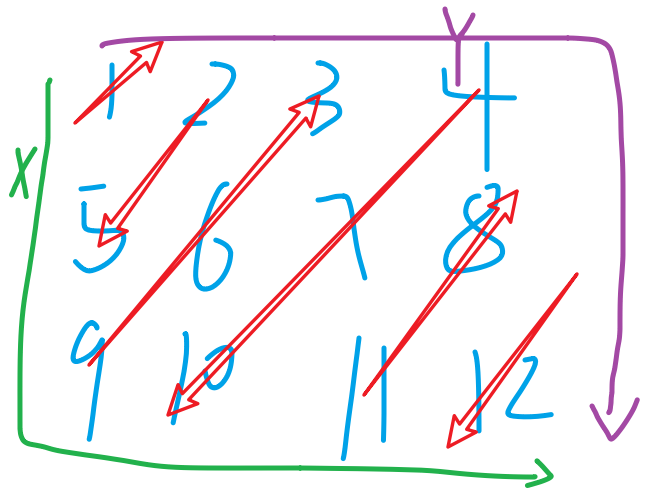 Y
1 2 3 4
X
5 6 7 8
9 10 11 12